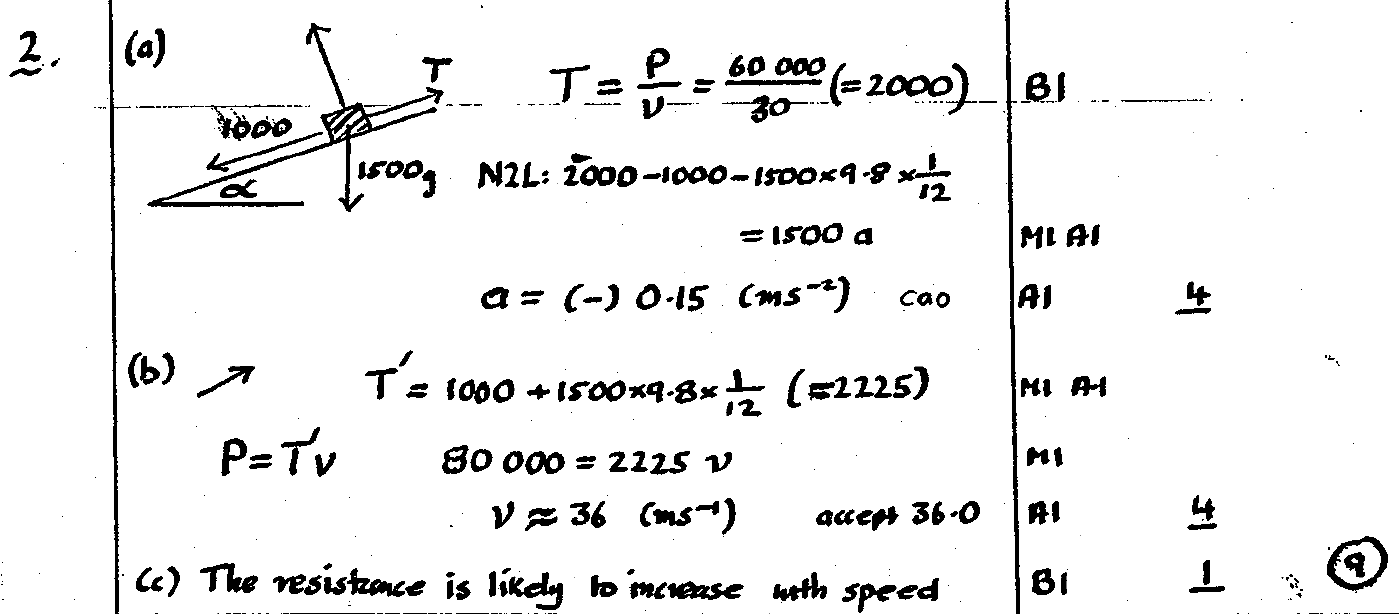 2. (a) T T = P/v = 60 000/30 (=2000) B1
1000
1500g N2L: 2000 - 1000 - 1500 × 9.8 × 1/12
α
= 1500 a M1 A1
a = (-) 0.15 (ms⁻²) cao A1 4
(b) ↗ T' = 1000 + 1500×9.8× 1/12 (=2225) M1 A1
P = T'v 80 000 = 2225 v M1
v ≈ 36 (ms⁻¹) accept 36.0 A1 4
(c) The resistance is likely to increase with speed B1 1 9